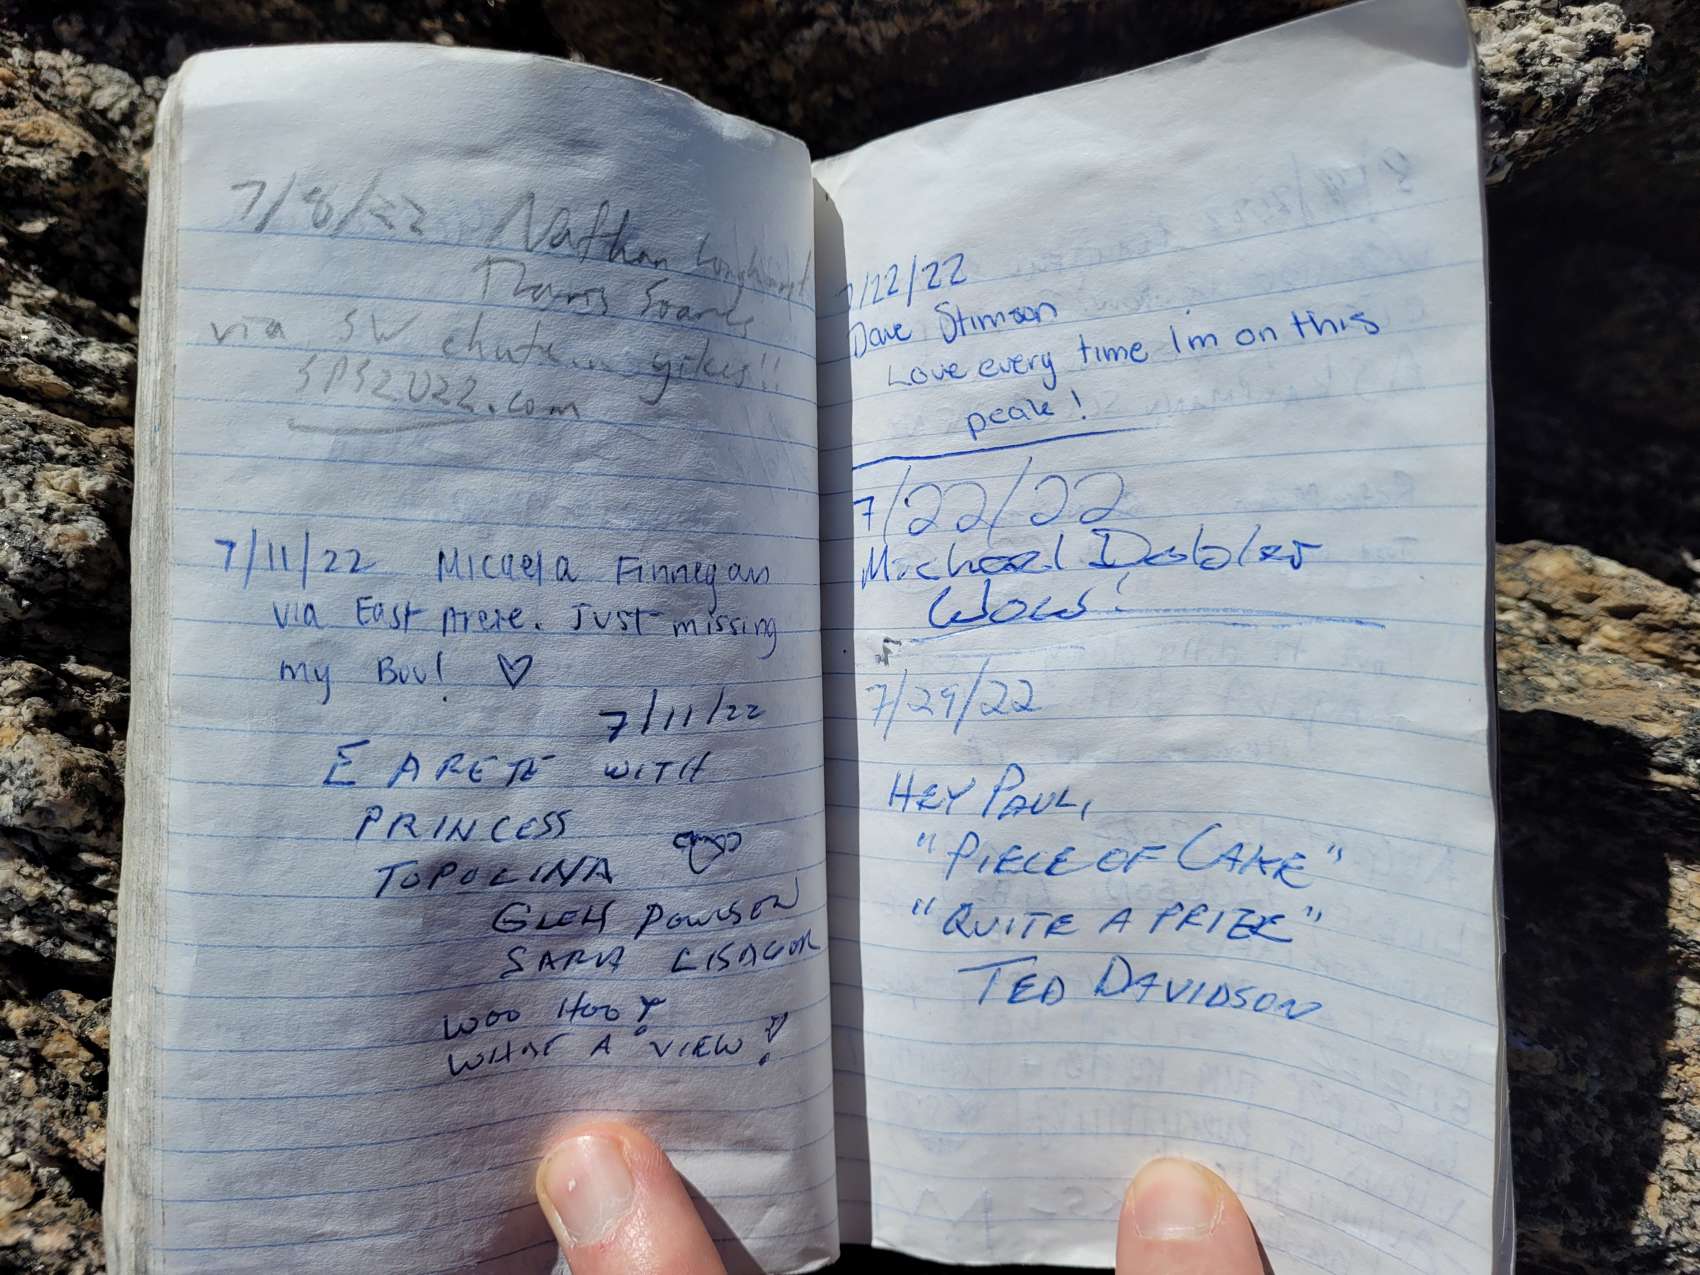 7/8/22 Nathan Longhurst
Travis Soares
via SW chute... yikes!!
SPS2022.com
7/11/22 Micaela Finnegan
via East Arete. Just missing
my Buu! ♡
7/11/22
E ARETE WITH
PRINCESS
TOPOLINA
GLEN POULSEN
SARA LISAGOR
WOO HOO!
WHAT A VIEW!
7/22/22
Dave Stimson
Love every time I'm on this
peak!
7/22/22
Michael Dobler
Wow!
7/29/22
HEY PAUL,
"PIECE OF CAKE"
"QUITE A PRIZE"
TED DAVIDSON